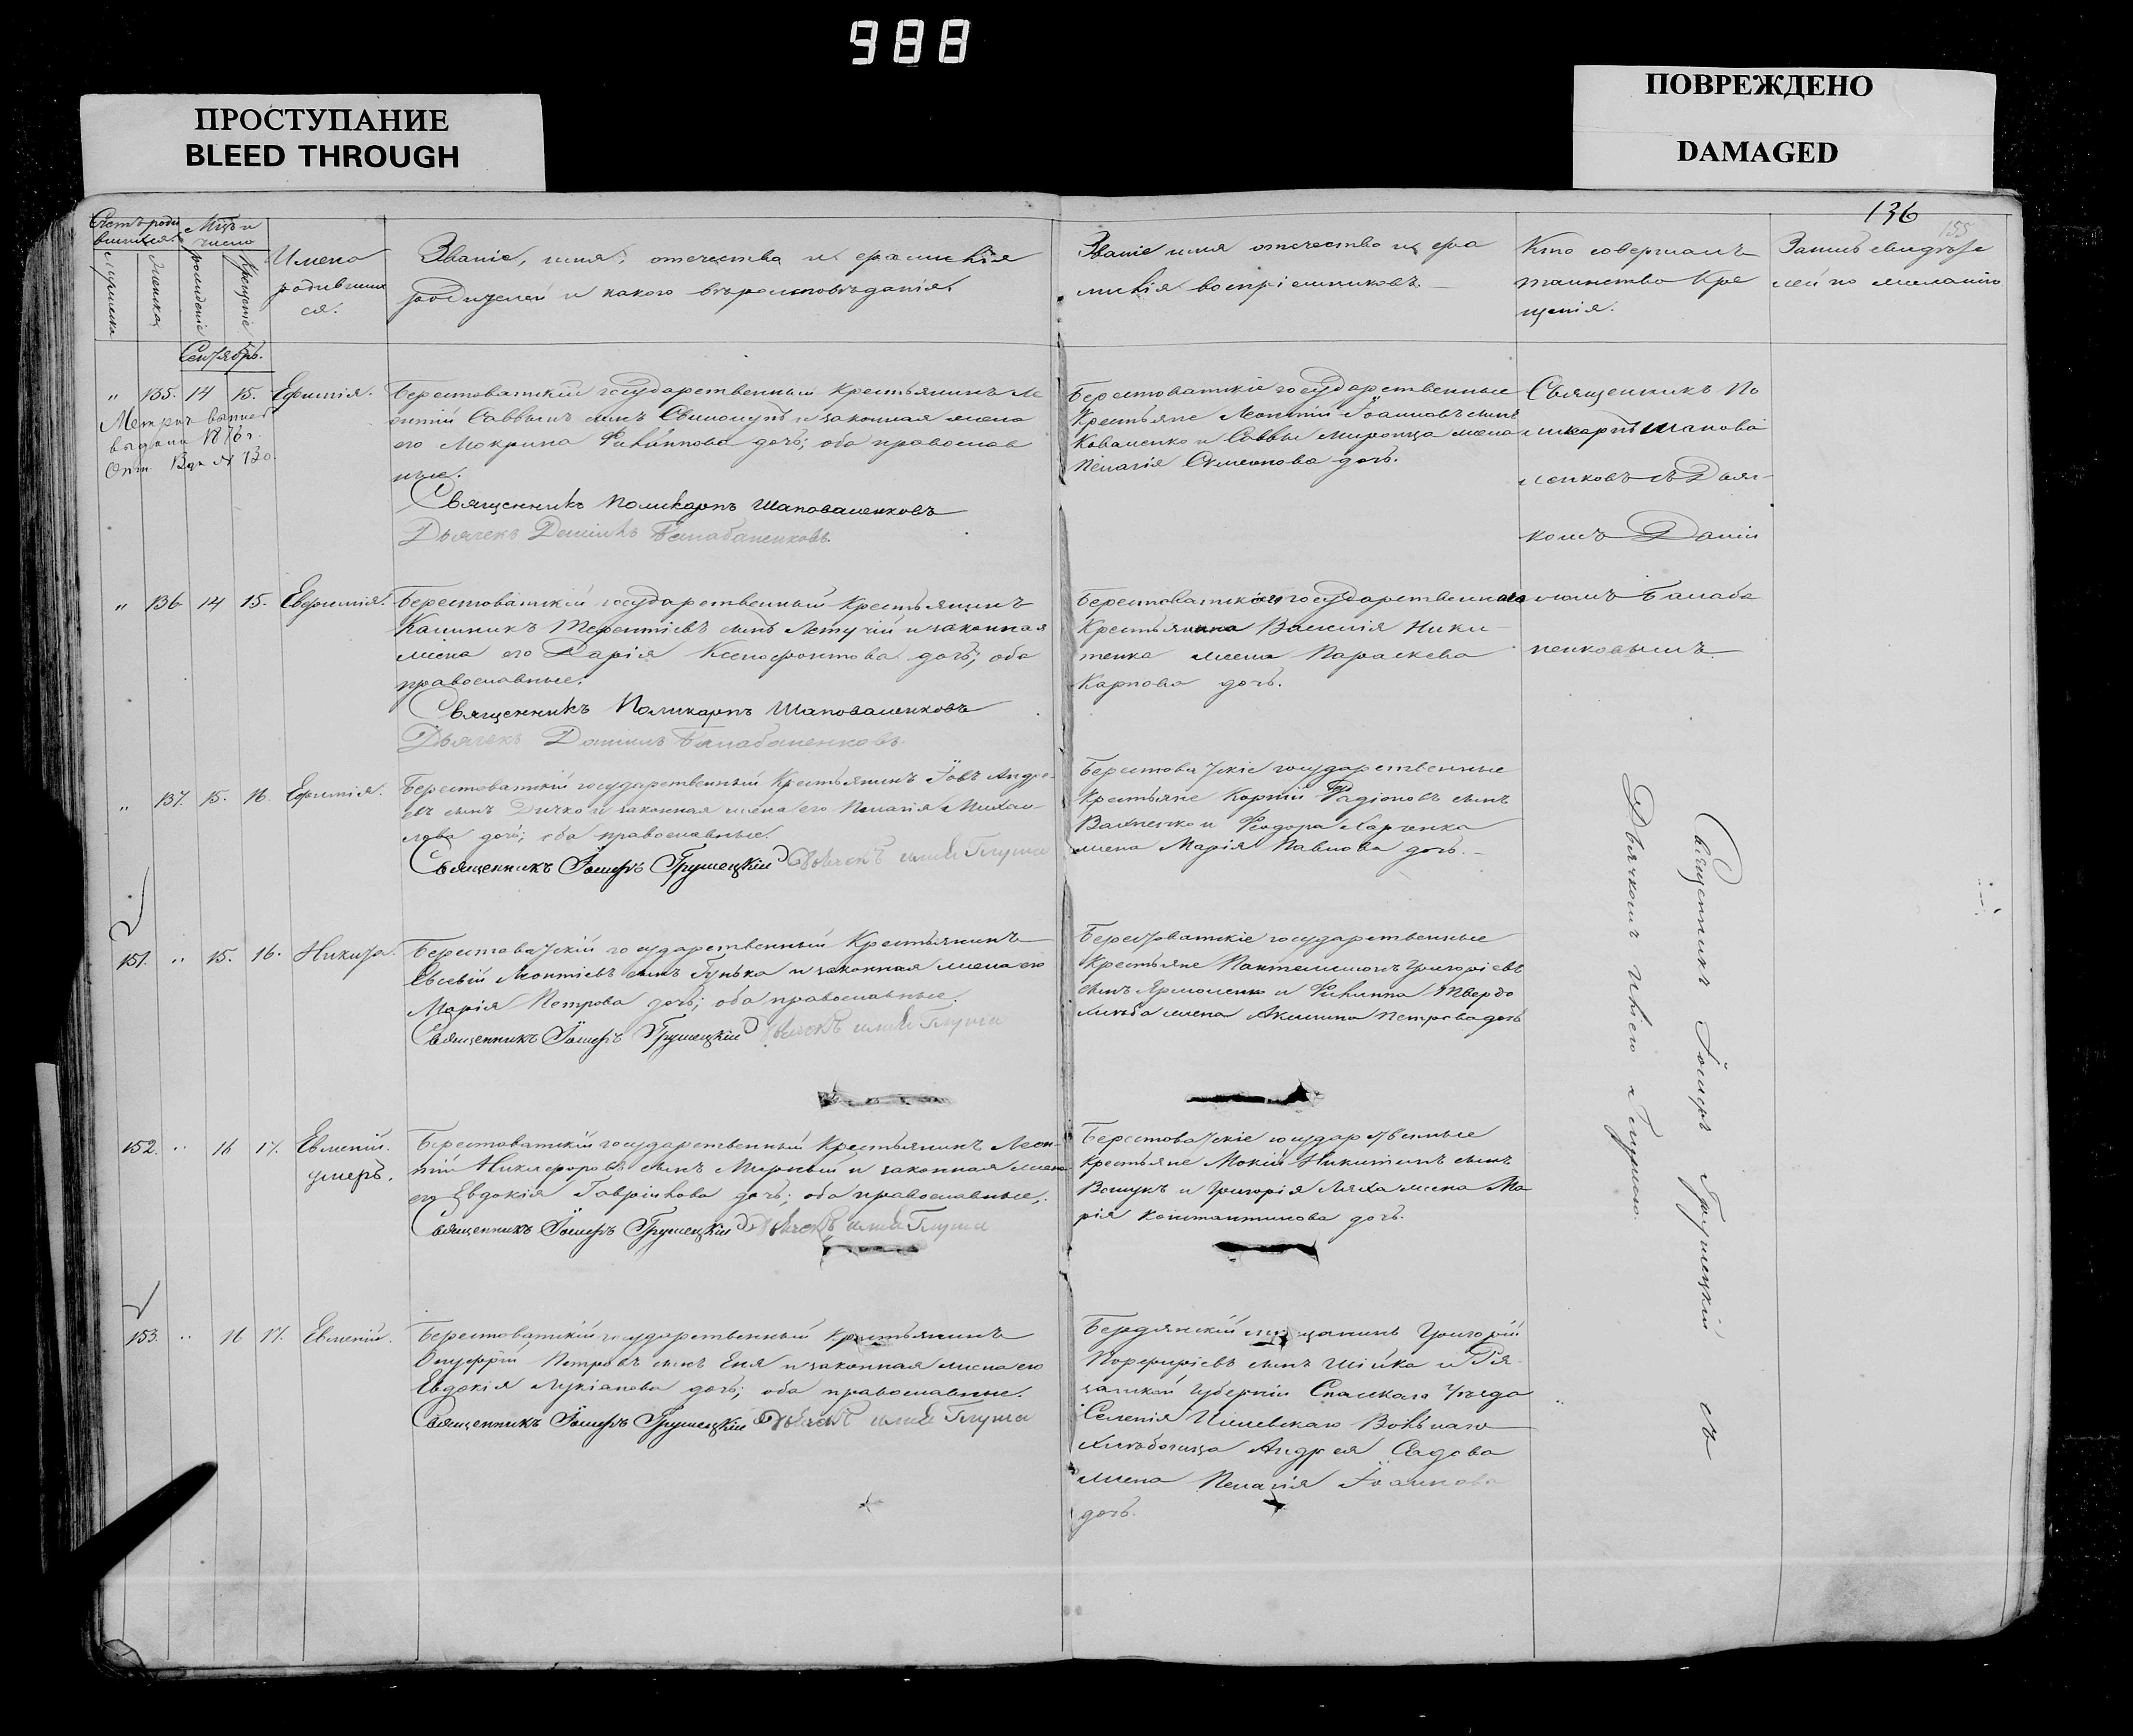 988
ПРОСТУПАНИЕ
BLEED THROUGH
ПОВРЕЖДЕНО
DAMAGED
136
155
Счетъ роди
вшихся.
Мѣц. и
число
мужеска
женска
рожденіе
крещеніе
Имена
родивших
ся.
Званіе, имя, отечество и фамилія
родителей и какого вѣроисповѣданія.
Званіе имя отечество и фа
милія воспріемниковъ.
Кто совершалъ
таинство кре
щенія.
Сентябрь.
" 135. 14 15. Ефимія.
Метрич.
выдана 1876 г.
№ 130.
Берестоватскій государственный крестьянинъ Ле
онтій Саввинъ сынъ и законная жена
его Мокрина Филиппова дочь; оба православ
ные.
Священникъ Поликарпъ Шаповаленковъ
Дьячекъ Даніилъ Балабаненковъ.
Берестоватскіе государственные
крестьяне Леонтій Іоанновъ сынъ
Коваленко и Саввы Миронца жена
Пелагія Симеонова дочь.
Священникъ По
ликарпъ Шапова
ленковъ съ Дьяч-
комъ Даніи
ломъ Балаба
ненковымъ.
" 136 14 15. Евфимія.
Берестоватскій государственный крестьянинъ
Калиникъ Терентіевъ сынъ Летучій и законная
жена его Дарія Ксенофонтова дочь; оба
православные.
Священникъ Поликарпъ Шаповаленковъ
Дьячекъ Даніилъ Балабаненковъ.
Берестоватского государственнаго
крестьянина Василія Ники-
тенка жена Параскева
Карпова дочь.
" 137. 15. 16. Ефимія.
Берестоватскій государственный крестьянинъ Іовъ Андре-
евъ сынъ Дичко и законная жена его Пелагія Михаи-
лова дочь; оба православные.
Священникъ Іосифъ Грушецкій Дьячекъ Глуша
Берестоватскіе государственные
крестьяне Корній Радіоновъ сынъ
Вахненко и Феодора Харченка
жена Марія Павлова дочь.
Священникъ Іосифъ Грушецкій съ
Дьячкомъ Глушою.
151. " 15. 16. Никита.
Берестоватскій государственный крестьянинъ
Евсевій Леонтіевъ сынъ Гунька и законная жена его
Марія Петрова дочь; оба православные.
Священникъ Іосифъ Грушецкій Дьячекъ Глуша
Берестоватскіе государственные
крестьяне Пантелимонъ Григоріевъ
сынъ Ярмоленко и Филиппа Твердо
хлѣба жена Акилина Петрова дочь
152. " 16 17. Евменій.
умеръ.
Берестоватскій государственный крестьянинъ Леон-
тій Никифоровъ сынъ Мирный и законная жена
его Евдокія Гавріилова дочь; оба православные.
Священникъ Іосифъ Грушецкій Дьячекъ Глуша
Берестоватскіе государственные
крестьяне Мокій Никитинъ сынъ
и Григорія Ляха жена Ма
рія Константинова дочь.
153. " 16 17. Евменій.
Берестоватскій государственный крестьянинъ
Онуфрій Петровъ сынъ Еня и законная жена его
Евдокія Лукіанова дочь; оба православные.
Священникъ Іосифъ Грушецкій Дьячекъ Глуша
Бердянскій мѣщанинъ Григорій
Порфиріевъ сынъ Шійка и Ря-
занской губерніи Спаскаго уѣзда
Селенія Вольнаго
хлѣбопашца Андрея Седова
жена Пелагія Іоаннова
дочь.